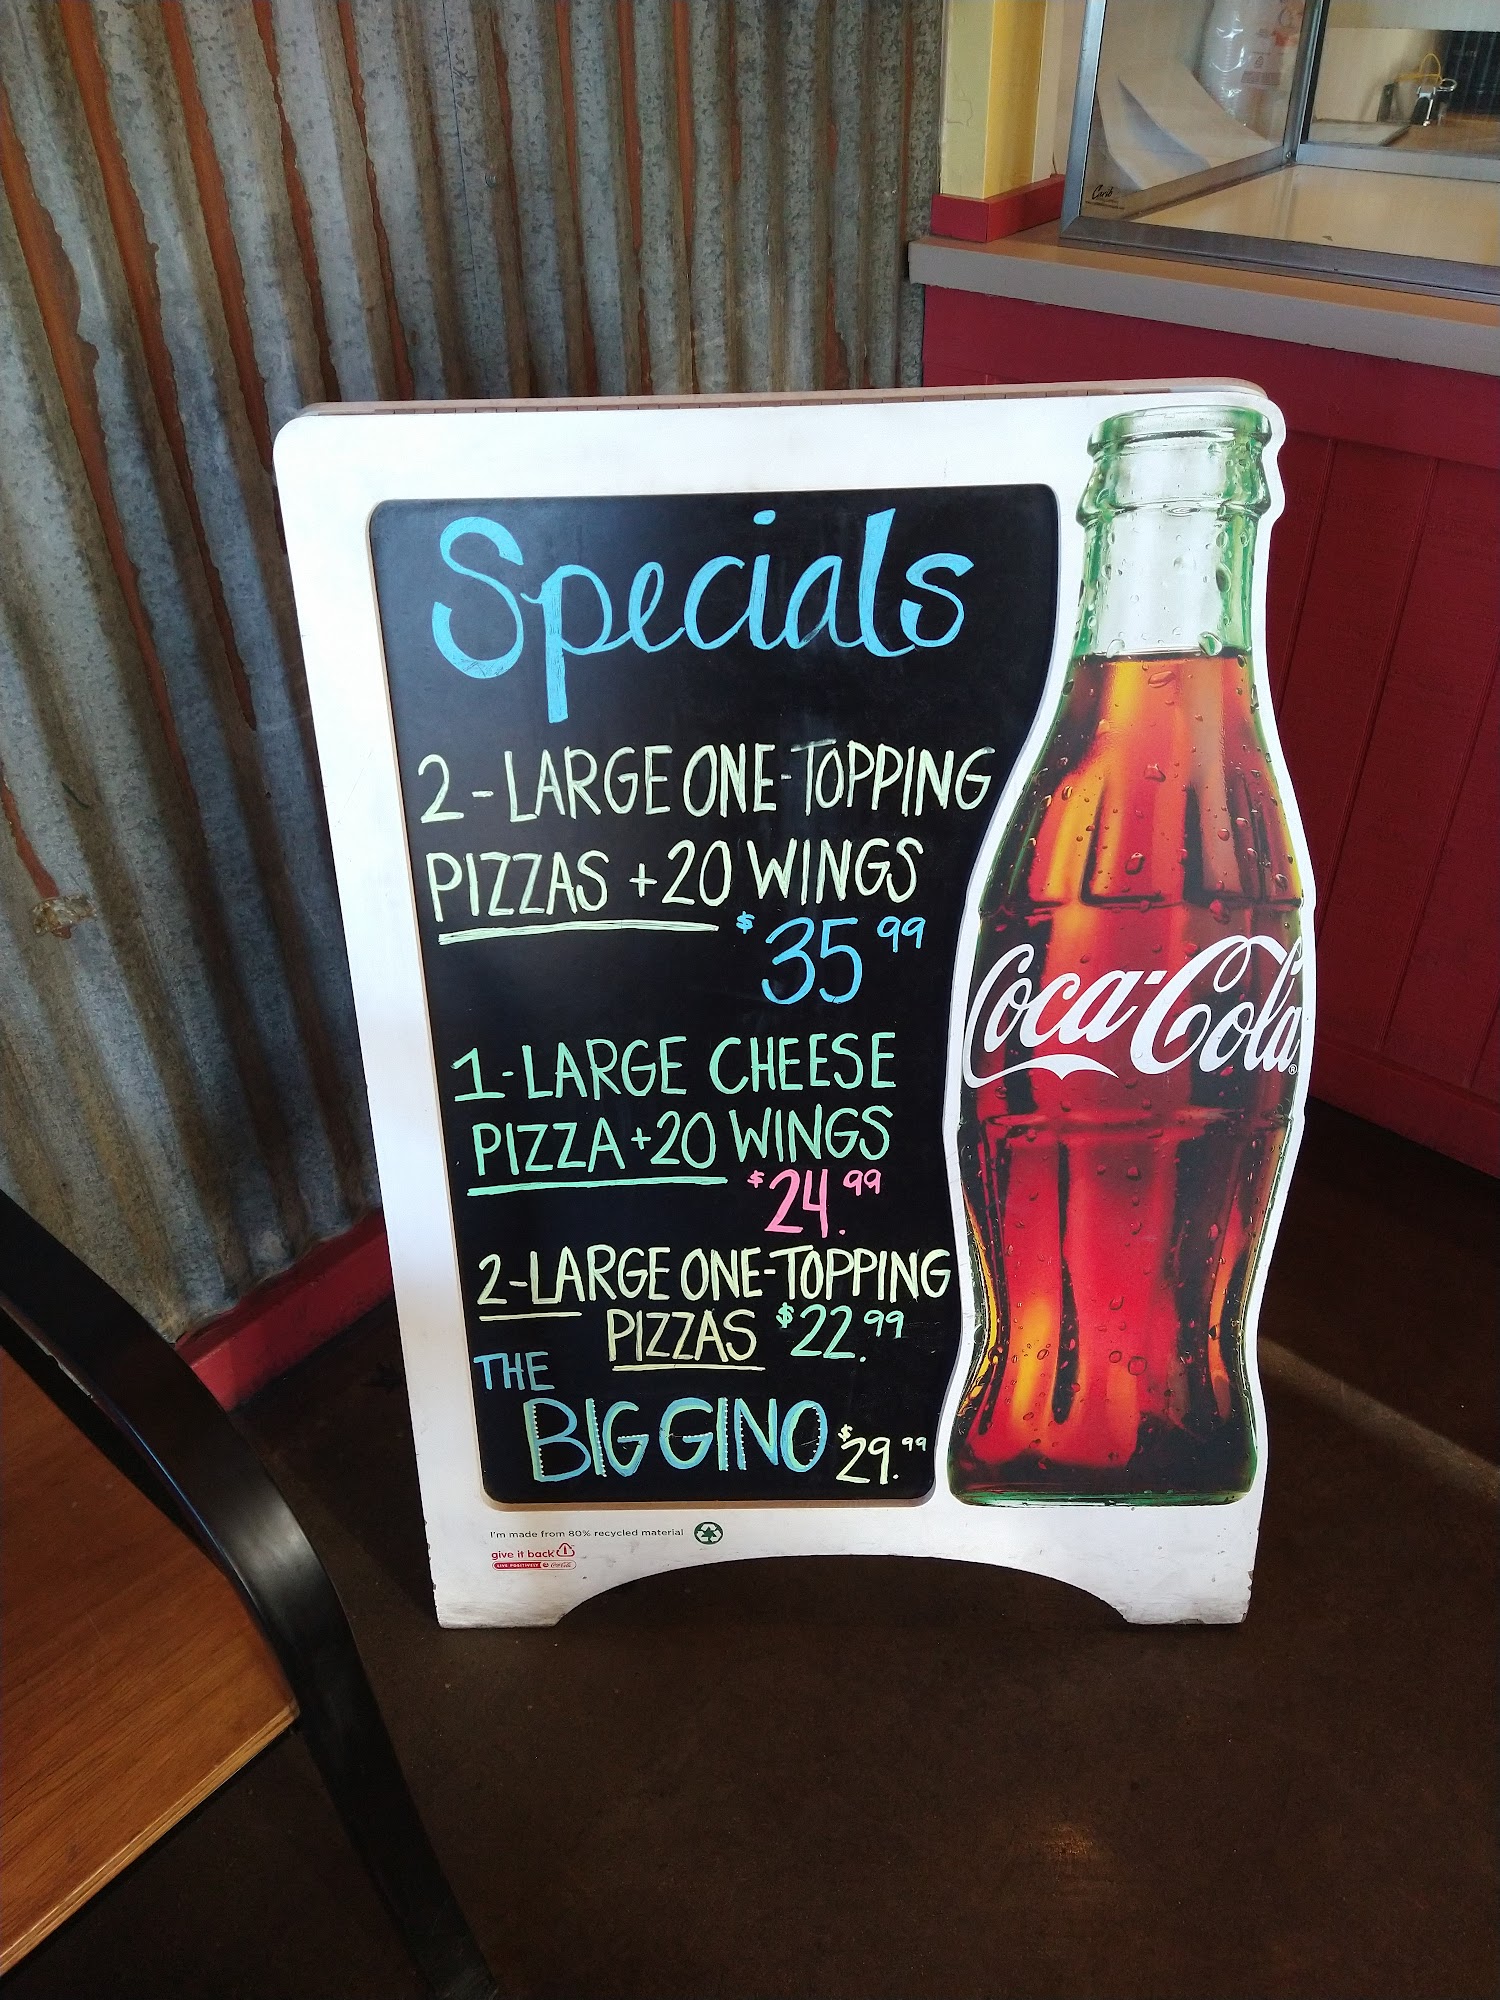 Specials
2-LARGE ONE-TOPPING
PIZZAS + 20 WINGS
$35 99
1-LARGE CHEESE
PIZZA + 20 WINGS
$24.99
2-LARGE ONE-TOPPING
PIZZAS $22.99
THE
BIG GINO $29.99
Coca-Cola®
I'm made from 80% recycled material
give it back
LIVE POSITIVELY Coca-Cola
Carib